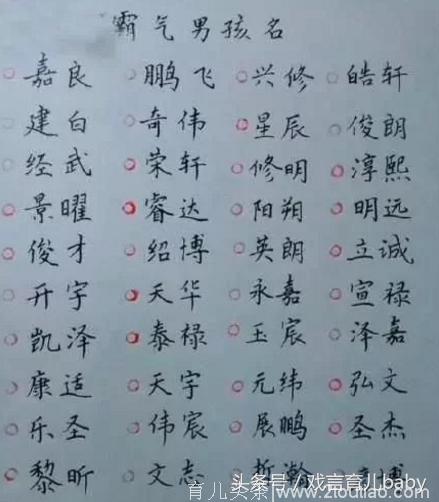 霸气男孩名
嘉良 鹏飞 兴修 皓轩
建白 奇伟 星辰 俊朗
经武 荣轩 修明 淳熙
景曜 睿达 阳朔 明远
俊才 绍博 英朗 立诚
开宇 天华 永嘉 宣禄
凯泽 泰禄 玉宸 泽嘉
康适 天宇 元纬 弘文
乐圣 伟宸 展鹏 圣杰
黎昕 文志 哲瀚 博
头条号/戏言育儿baby
育儿头条 www.ztoutiao.com